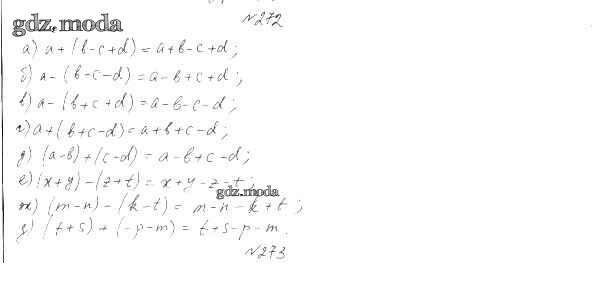 №272
gdz.moda
а) a + (b - c + d) = a + b - c + d ;
б) a - (b - c - d) = a - b + c + d ;
в) a - (b + c + d) = a - b - c - d ;
г) a + (b + c - d) = a + b + c - d ;
д) (a - b) + (c - d) = a - b + c - d ;
е) (x + y) - (z + t) = x + y - z - t ;
gdz.moda
ж) (m - n) - (k - t) = m - n - k + t ;
з) (t + s) + (-p - m) = t + s - p - m .
№273